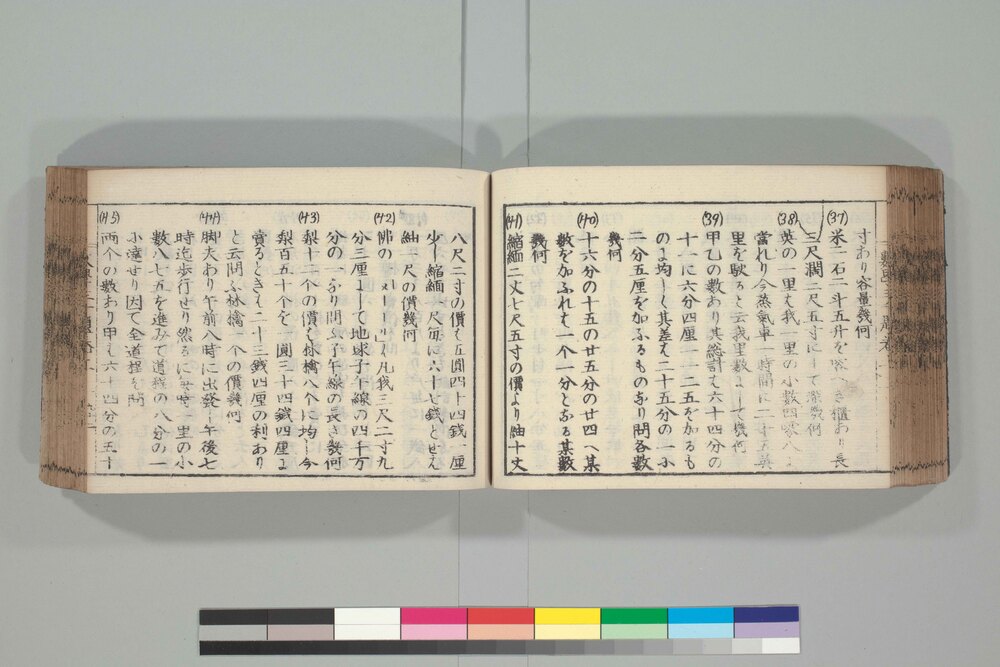 寸あり容量幾何
(37) 米一石二斗五升を容べき櫃あり長
三尺濶二尺五寸にして深幾何
(38) 英の一里も我一里の小数四〇八に
當れり今蒸氣車一時間に二十五英
里を馳ると云我里数にして幾何
(39) 甲乙の数あり其総計も六十四分の
十一に六分四厘一二五をかるも
のよ均しく其差も二十五分の一小
二分五厘を加ふるものなり問各数
幾何
(40) 十六分の十五の廿五分の廿四へ某
数を加ふれも一个一分となる某数
幾何
(41) 縮緬二丈七尺五寸の價より紬十丈
八尺二寸の價も五圓四十四錢一厘
少し縮緬一尺毎に六十七錢とせん
紬一尺の價幾何
(42) 佛の一メートルも凡我三尺二寸九
分三厘よして地球子午線の四千万
分の一なり問ふ子午線の長さ幾何
(43) 梨十二个の價も林檎八个に均し今
梨百五十个を一圓三十四錢四厘よ
賣るときも二十三錢四厘の利あり
と云問ふ林檎一个の價幾何
(44) 脚夫あり午前八時に出發し午後七
時迄歩行せり然るに毎時一里の小
数八七五を進みて道程の八分の一
小達せり因て全道程を問
(45) 両个の数あり甲も六十四分の五十